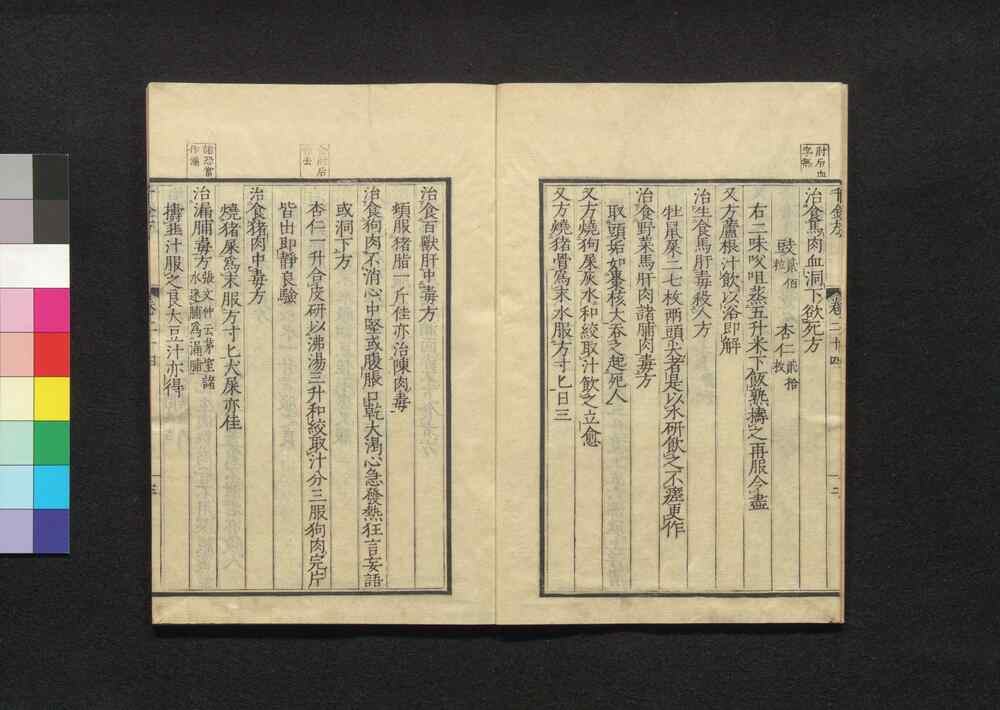 肘后血
字無
治食馬肉血洞下欲死方
豉貳佰粒 杏仁貳拾枚
右二味㕮咀蒸五升米下飯熟擣之再服令盡
又方蘆根汁飲以浴即解
治生食馬肝毒殺人方
牡鼠屎二七枚兩頭尖者是以水研飲之不瘥更作
治食野菜馬肝肉諸脯肉毒方
取頭垢如棗核大吞之起死人
又方燒狗屎灰水和絞取汁飲之立愈
又方燒猪骨爲末水服方寸匕日三
治食百獸肝中毒方
頓服猪脂一斤佳亦治陳肉毒
治食狗肉不消心中堅或腹脹口乾大渴心急發熱狂言妄語
或洞下方
杏仁一升合皮研以沸湯三升和絞取汁分三服狗肉完片
皆出即靜良驗
治食猪肉中毒方
燒猪屎爲末服方寸匕犬屎亦佳
治漏脯毒方張文仲云茅室諸水遂脯爲漏脯
擣韭汁服之良大豆汁亦得
卷二十四